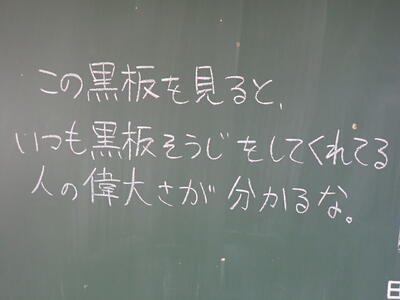 この黒板を見ると、
いつも黒板そうじをしてくれてる
人の偉大さが分かるな。
日